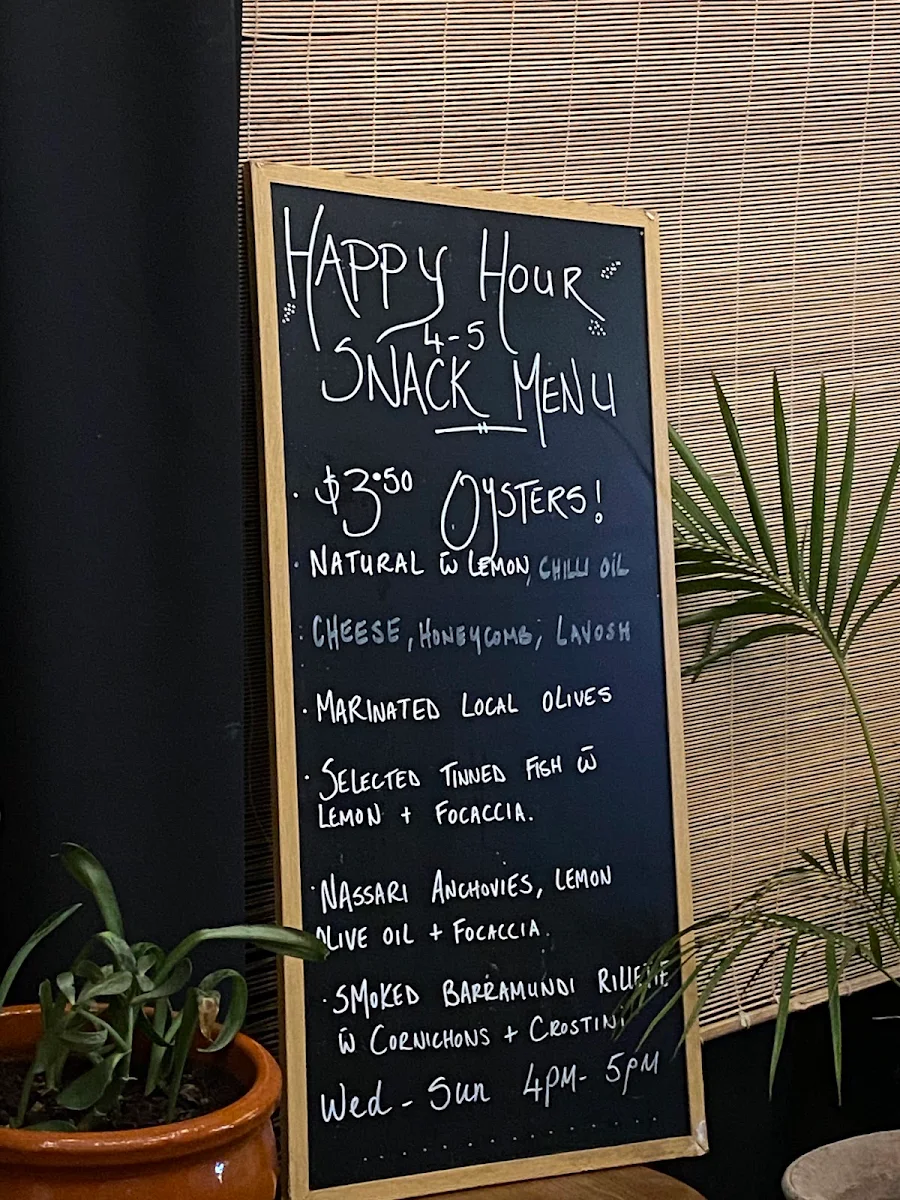 HAPPY HOUR
4-5
SNACK MENU
· $3.50 OYSTERS!
· NATURAL w̄ LEMON, CHILLI OIL
: CHEESE, HONEYCOMB, LAVOSH
· MARINATED LOCAL OLIVES
· SELECTED TINNED FISH w̄
LEMON + FOCACCIA.
· NASSARI ANCHOVIES, LEMON
OLIVE OIL + FOCACCIA.
· SMOKED BARRAMUNDI RILLETTE
w̄ CORNICHONS + CROSTINI
Wed - Sun 4PM - 5PM